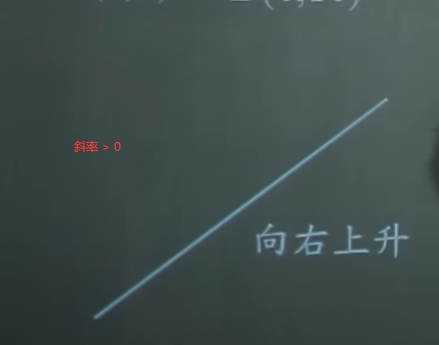 斜率 > 0
向右上升